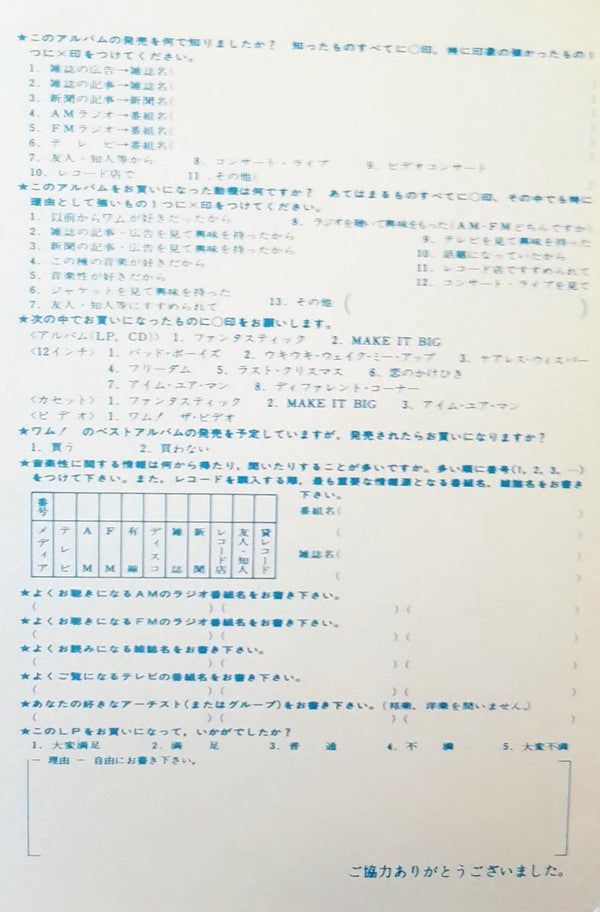 ★このアルバムの発売を何で知りましたか？ 知ったものすべてに○印、特に印象の強かったもの1
つに×印をつけてください。
1. 雑誌の広告→雑誌名(
2. 雑誌の記事→雑誌名(
3. 新聞の記事→新聞名(
4. AMラジオ→番組名(
5. FMラジオ→番組名(
6. テレビ→番組名(
7. 友人・知人等から 8. コンサート・ライブ 9. ビデオコンサート
10. レコード店で 11. その他(
★このアルバムをお買いになった動機は何ですか？ あてはまるものすべてに○印、その中でも特に
理由として強いもの1つに×印をつけてください。
1. 以前からワムが好きだったから 8. ラジオを聴いて興味をもった(AM・FMどちらですか
2. 雑誌の記事・広告を見て興味を持ったから 9. テレビを見て興味を持った
3. 新聞の記事・広告を見て興味を持ったから 10. 話題になっていたから
4. この種の音楽が好きだから 11. レコード店ですすめられて
5. 音楽性が好きだから 12. コンサート・ライブを見て
6. ジャケットを見て興味を持った
7. 友人・知人等にすすめられて 13. その他 ( )
★次の中でお買いになったものに○印をお願いします。
〈アルバム(LP, CD)〉 1. ファンタスティック 2. MAKE IT BIG
〈12インチ〉 1. バッド・ボーイズ 2. ウキウキ・ウェイク・ミー・アップ 3. ケアレス・ウィスパー
4. フリーダム 5. ラスト・クリスマス 6. 恋のかけひき
7. アイム・ユア・マン 8. ディファレント・コーナー
〈カセット〉 1. ファンタスティック 2. MAKE IT BIG 3. アイム・ユア・マン
〈ビデオ〉 1. ワム！ ザ・ビデオ
★ワム！ のベストアルバムの発売を予定していますが，発売されたらお買いになりますか？
1. 買う 2. 買わない
★音楽性に関する情報は何から得たり、聞いたりすることが多いですか。多い順に番号(1, 2, 3, …)
をつけて下さい。また、レコードを購入する際、最も重要な情報源となる番組名、雑誌名をお書き
下さい。
番号
メディア テレビ AM FM 有線 ディスコ 雑誌 新聞 レコード店 友人・知人 貸レコード
番組名(
(
雑誌名(
(
★よくお聴きになるAMのラジオ番組名をお書き下さい。
( ) ( ) ( )
★よくお聴きになるFMのラジオ番組名をお書き下さい。
( ) ( ) ( )
★よくお読みになる雑誌名をお書き下さい。
( ) ( ) ( )
★よくご覧になるテレビの番組名をお書き下さい。
( ) ( ) ( )
★あなたの好きなアーチスト(またはグループ)をお書き下さい。(邦楽、洋楽を問いません。)
( ) ( ) ( )
★このLPをお買いになって、いかがでしたか？
1. 大変満足 2. 満 足 3. 普 通 4. 不 満 5. 大変不満
理由 － 自由にお書き下さい。
ご協力ありがとうございました。